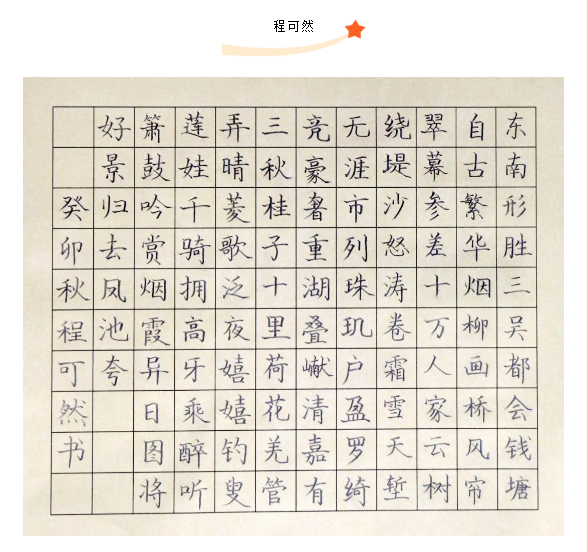 程可然
东南形胜三吴都会钱塘
自古繁华烟柳画桥风帘
翠幕参差十万人家云树
绕堤沙怒涛卷霜雪天堑
无涯市列珠玑户盈罗绮
竞豪奢重湖叠𪩘清嘉有
三秋桂子十里荷花羌管
弄晴菱歌泛夜嬉嬉钓叟
莲娃千骑拥高牙乘醉听
箫鼓吟赏烟霞异日图将
好景归去凤池夸
癸卯秋程可然书